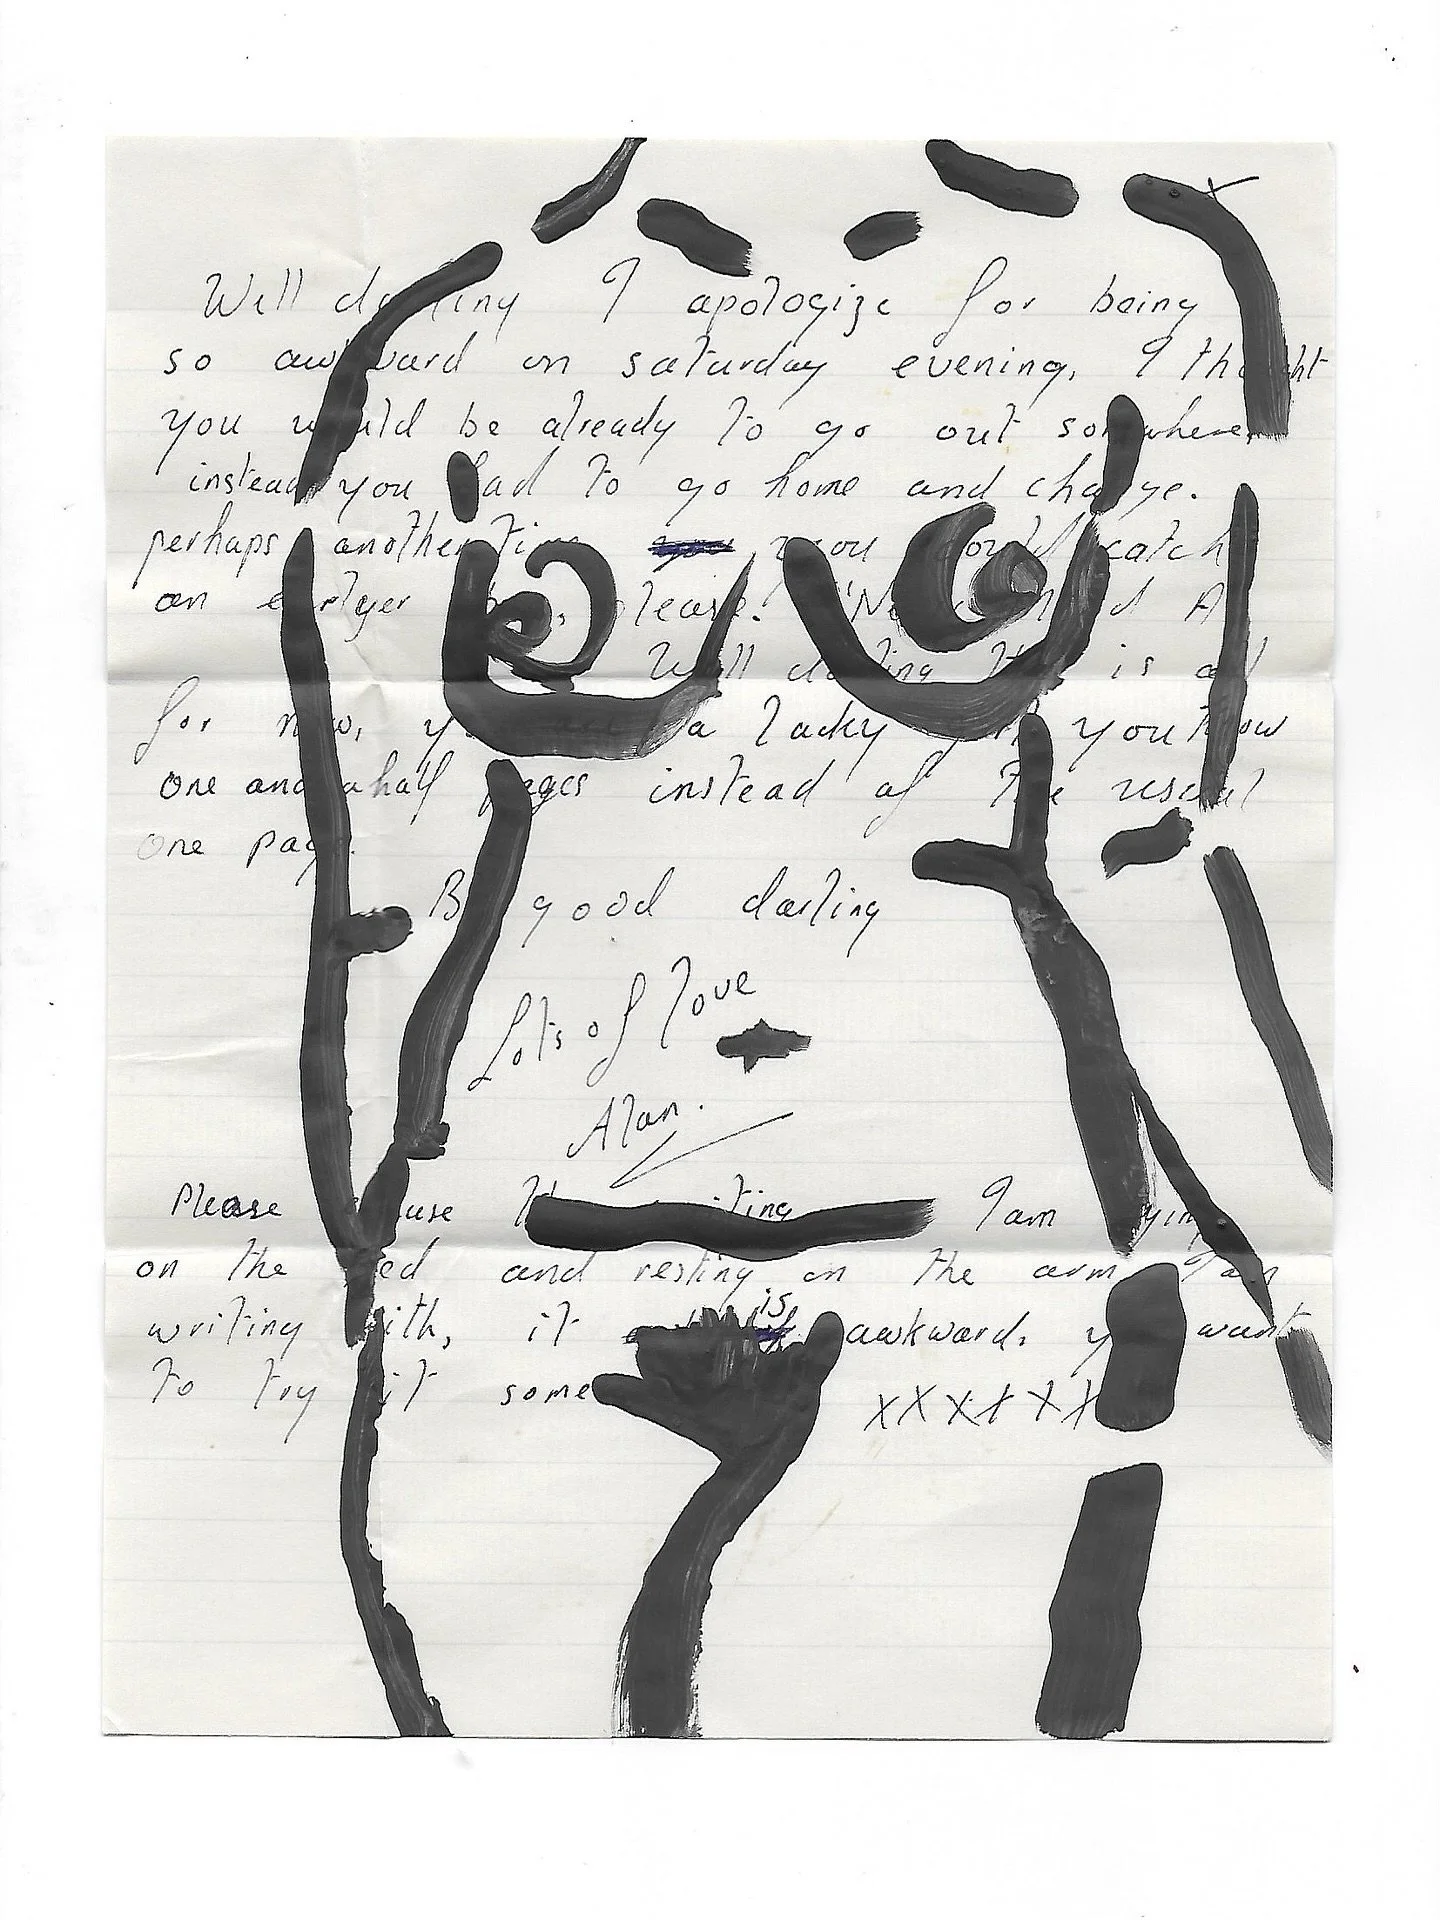 Well darling I apologize for being
so awkward on saturday evening, I thought
you would be already to go out somewhere,
instead you had to go home and change.
perhaps another time you could catch
an earlyer please.
Well darling this is all
for now, a lucky girl you know
one and a half pages instead of the usual
one page.
Be good darling
Lots of love
Alan.
Please excuse the writing I am lying
on the bed and resting on the arm I am
writing with, it is awkward, you want
to try it some
x x x x x x